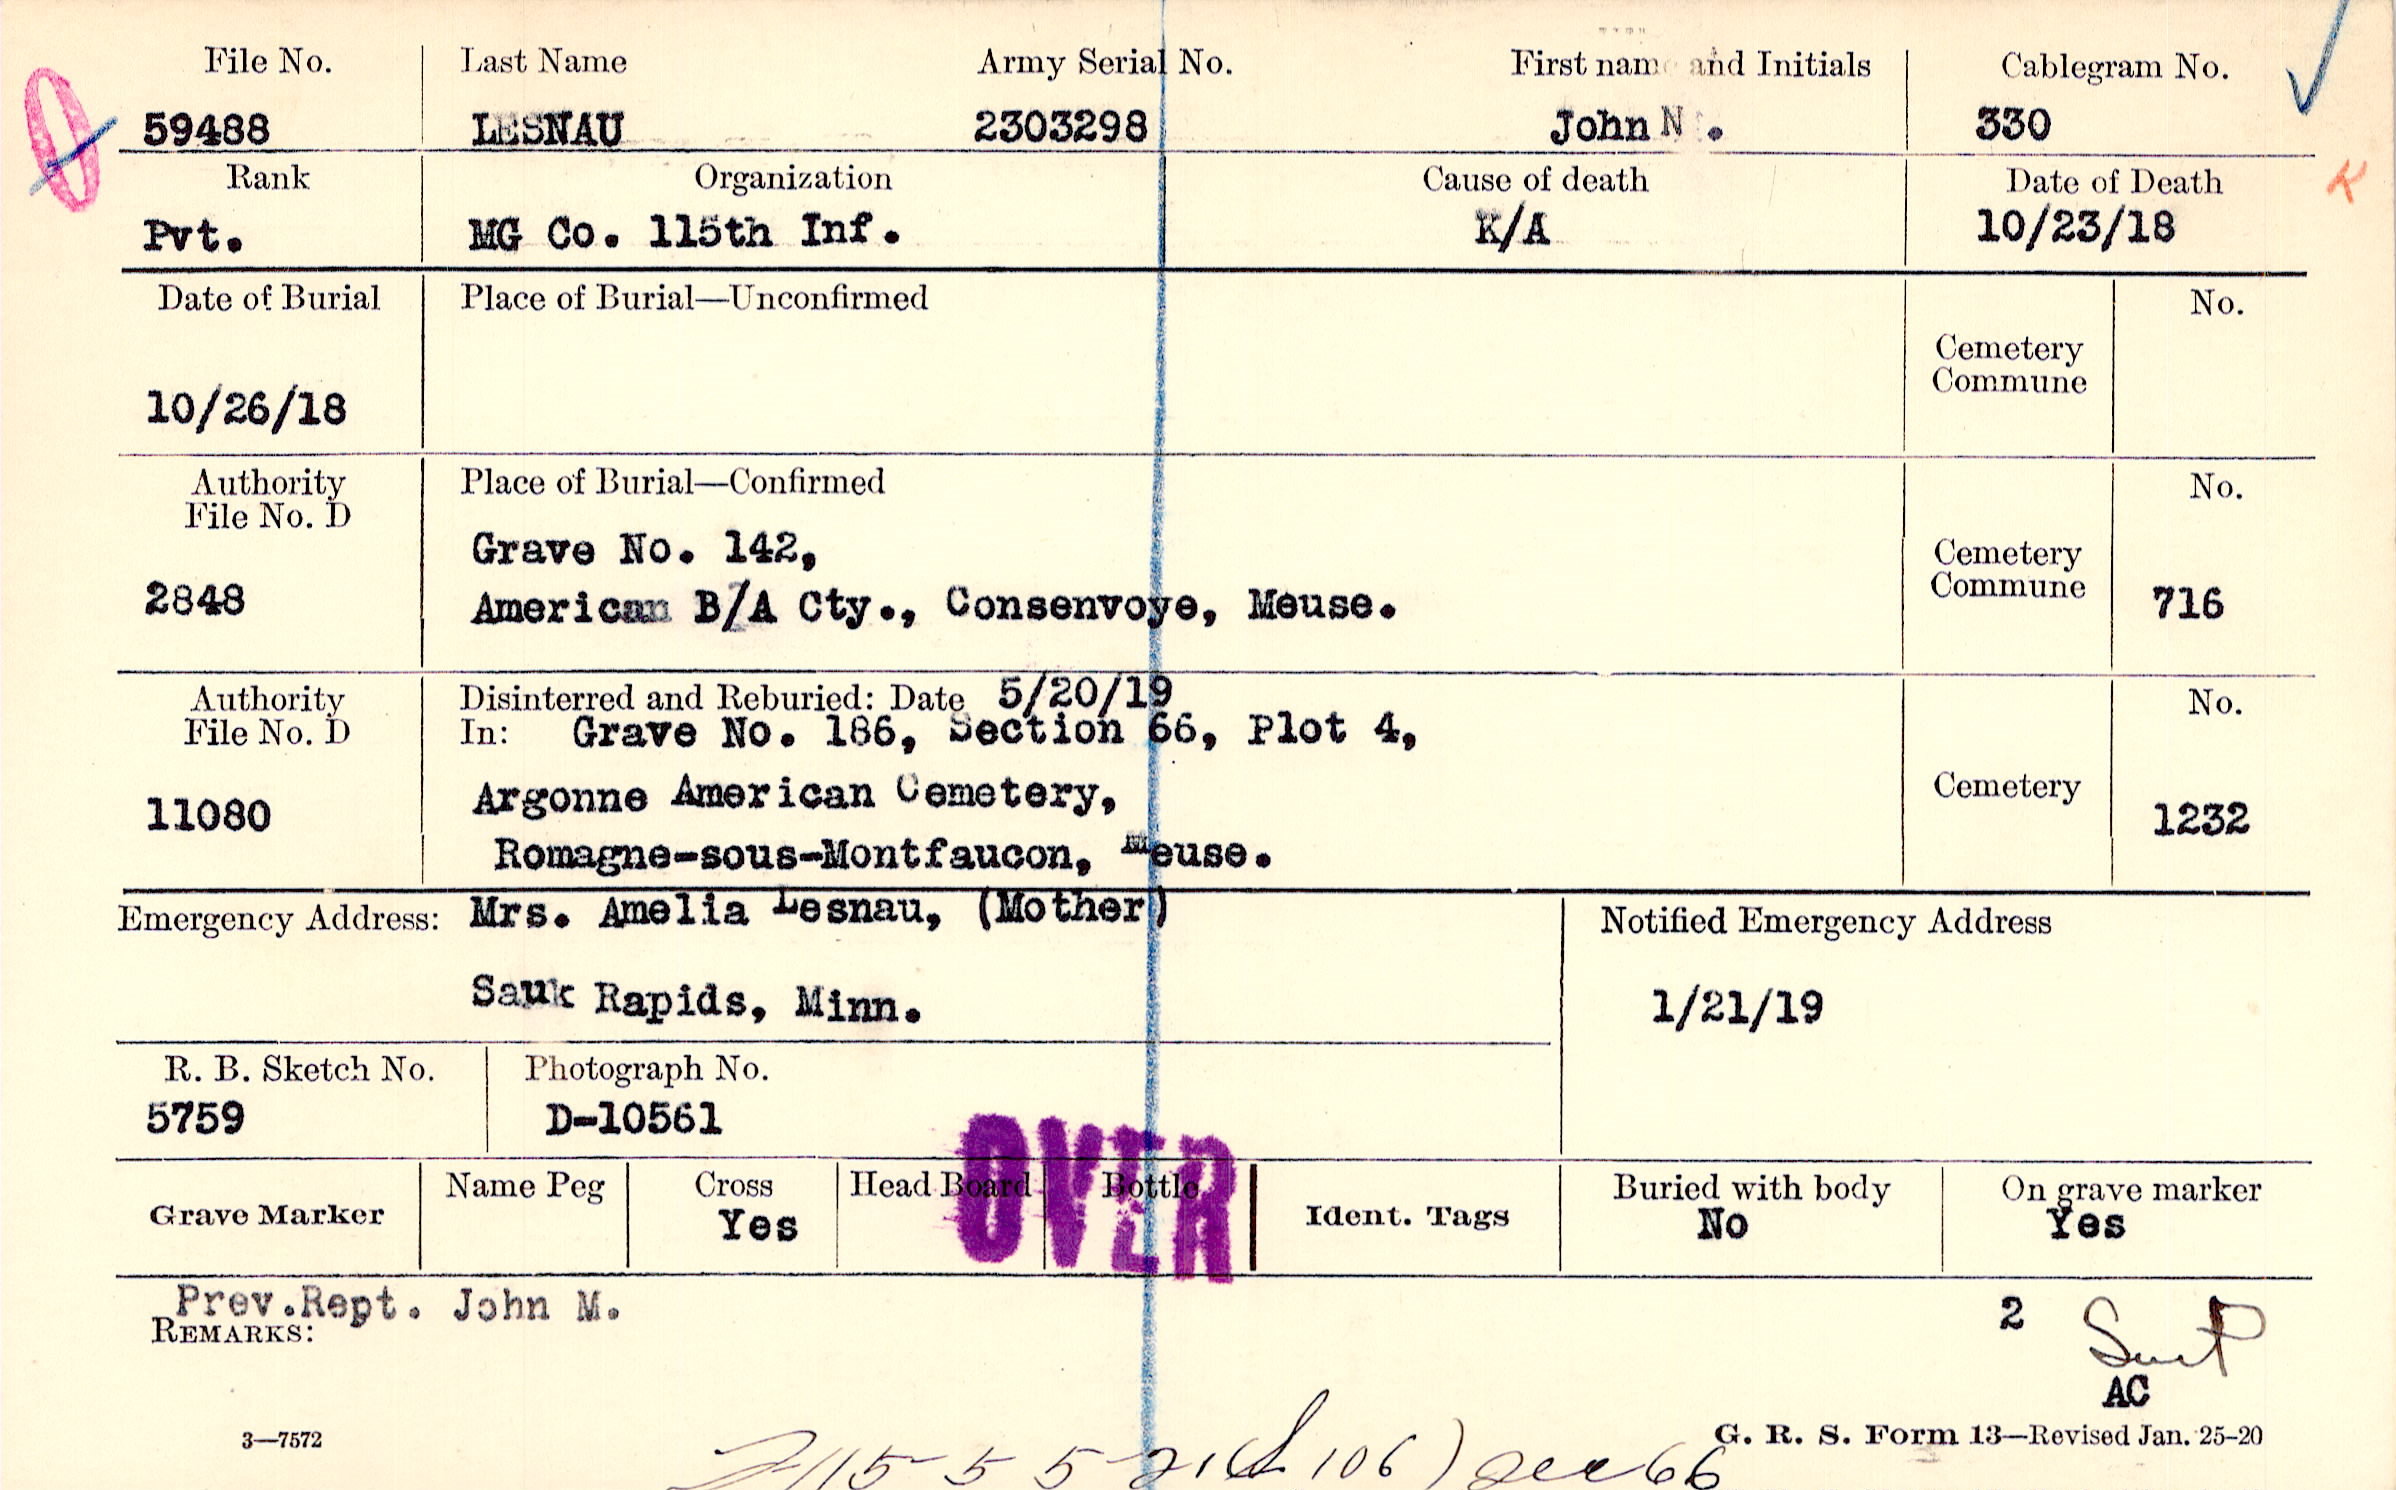 File No. Last Name Army Serial No. First name and Initials Cablegram No.
59488 LESNAU 2303298 John N. 330
Rank Organization Cause of death Date of Death
Pvt. MG Co. 115th Inf. K/A 10/23/18 K
Date of Burial Place of Burial—Unconfirmed No.
Cemetery
Commune
10/26/18
Authority Place of Burial—Confirmed No.
File No. D
Grave No. 142,
Cemetery
Commune
2848 American B/A Cty., Consenvoye, Meuse. 716
Authority Disinterred and Reburied: Date 5/20/19 No.
File No. D In: Grave No. 186, Section 66, Plot 4,
Argonne American Cemetery, Cemetery
11080 1232
Romagne-sous-Montfaucon, Meuse.
Emergency Address: Mrs. Amelia Lesnau, (Mother) Notified Emergency Address
Sauk Rapids, Minn. 1/21/19
R. B. Sketch No. Photograph No.
5759 D-10561
OVER
Grave Marker Name Peg Cross Head Board Bottle Ident. Tags Buried with body On grave marker
Yes No Yes
Prev.Rept. John M. 2
REMARKS:
AC
3—7572 G. R. S. Form 13—Revised Jan. 25-20
106) 66